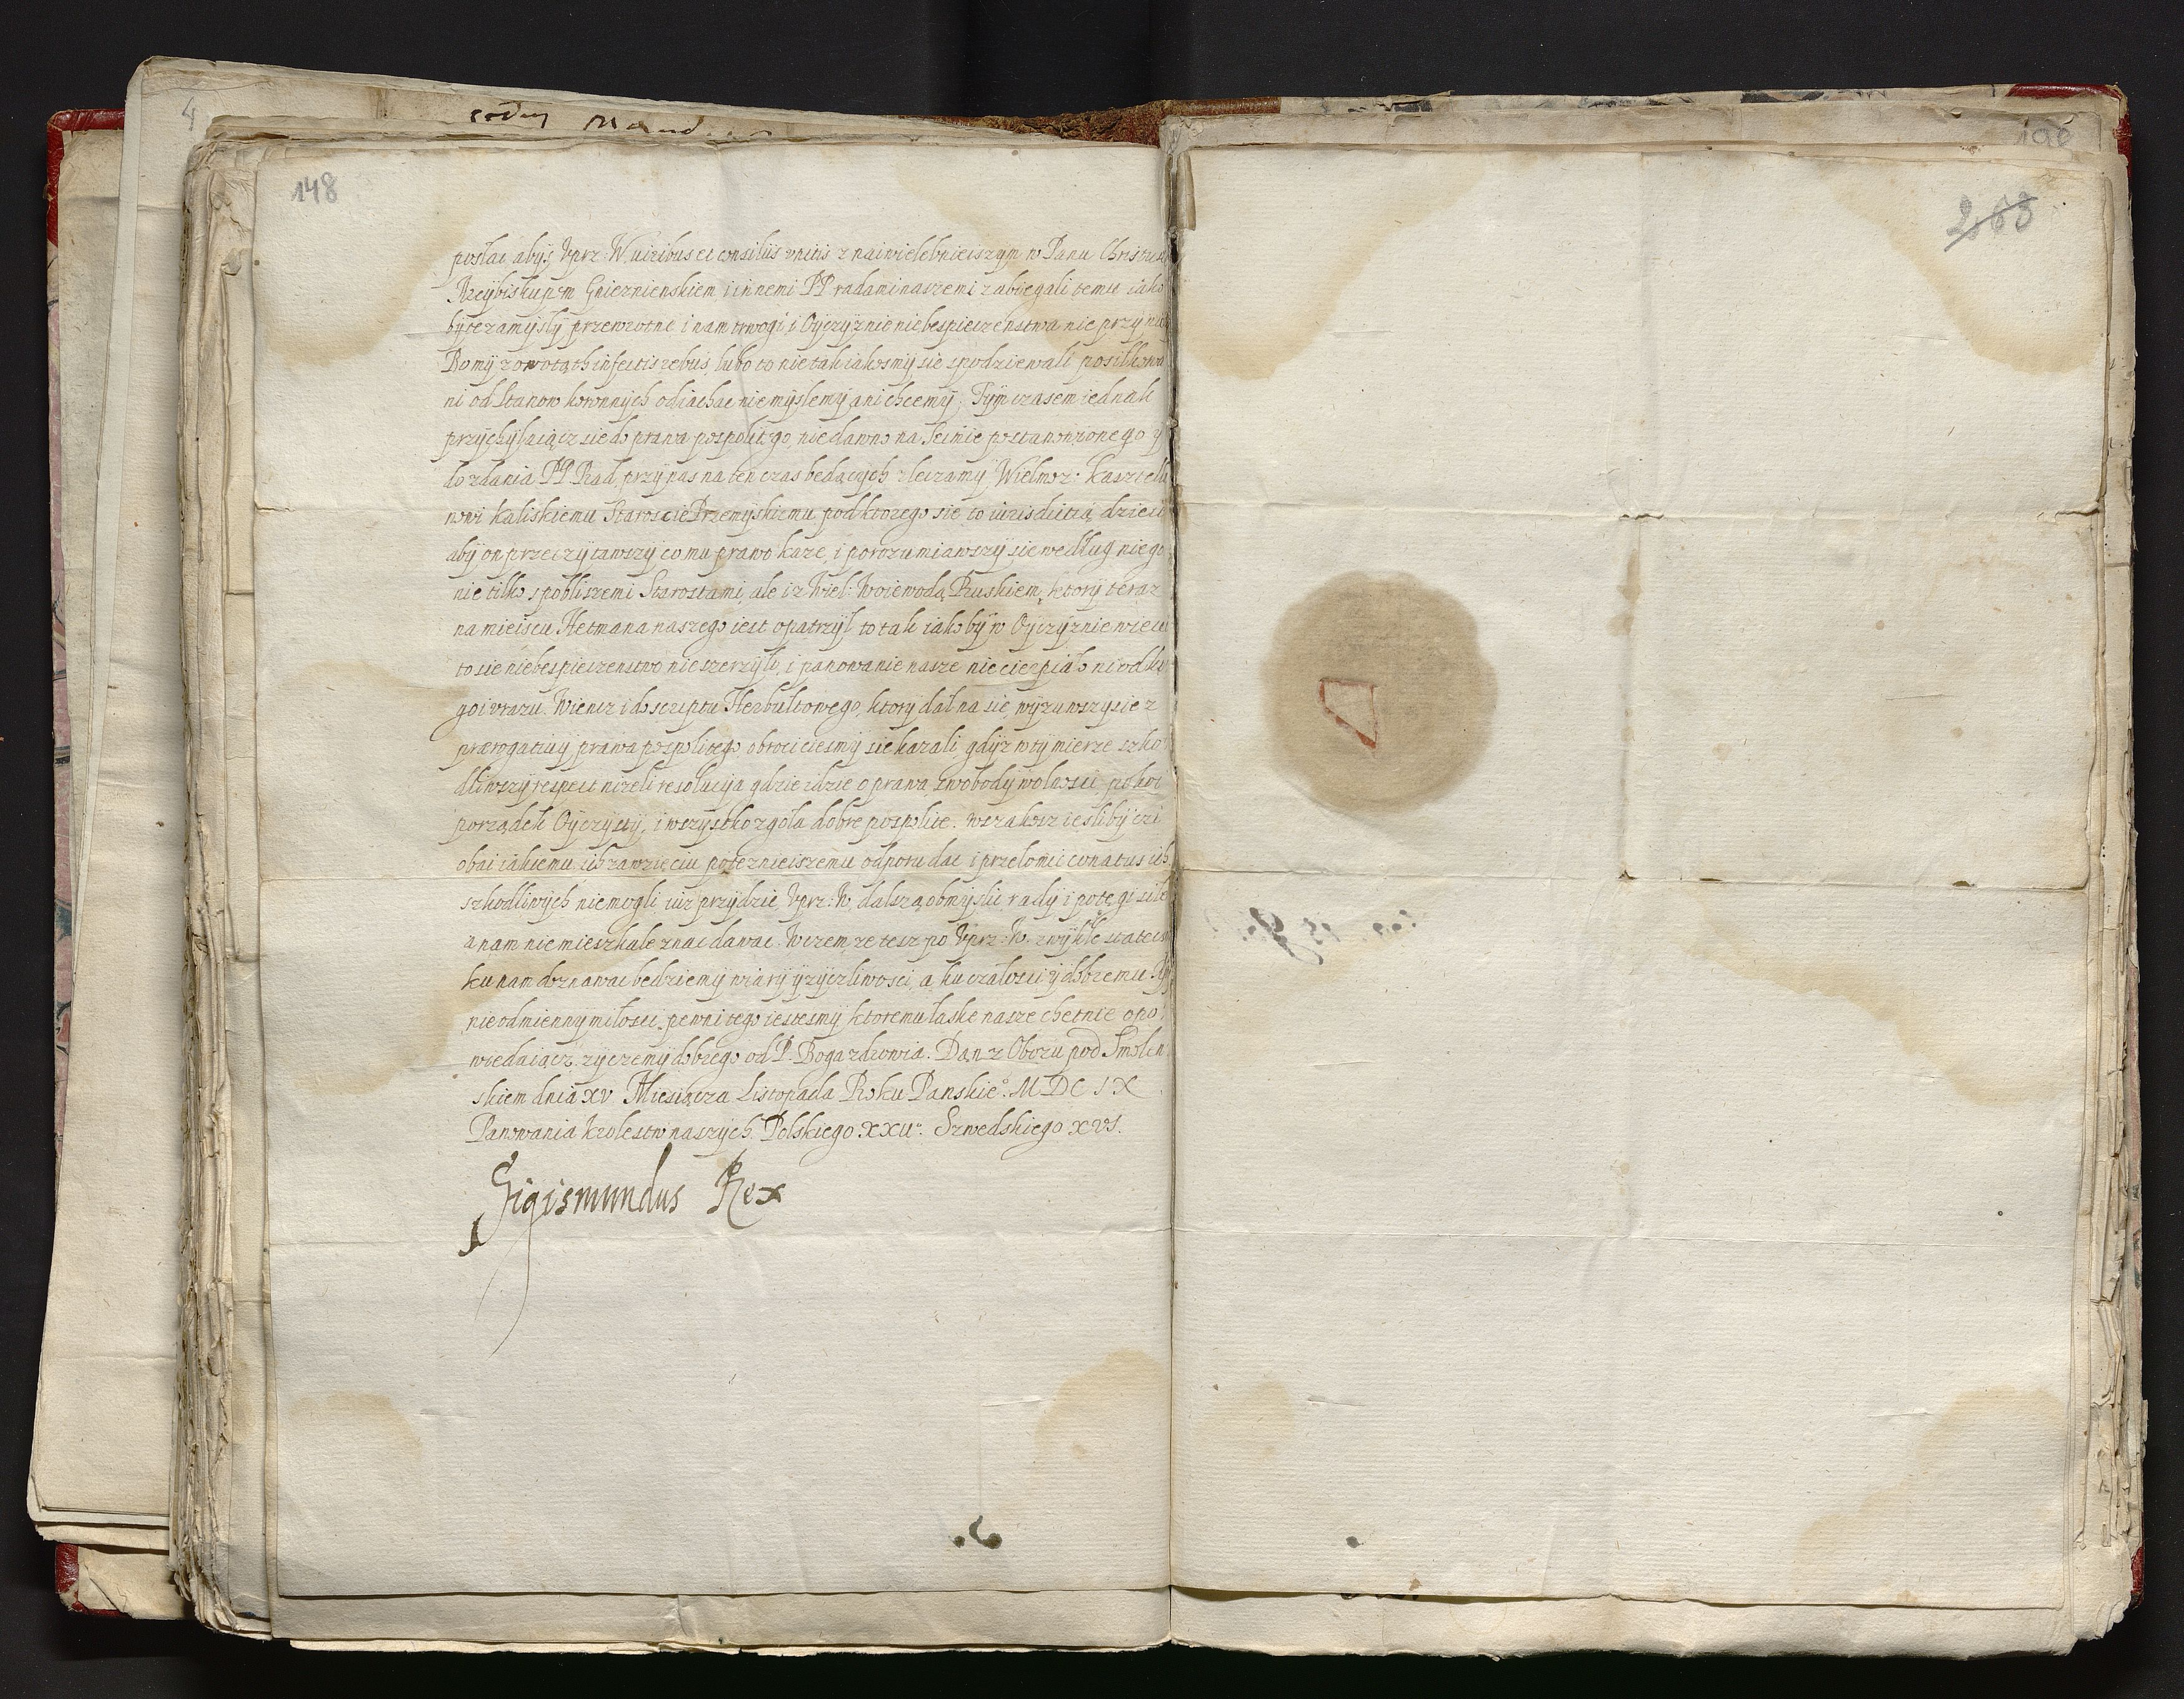 4
eodem Mand
148
196
263
posłac abys Vprz: W. uiribus et consilijs vnitis z naiwielebnieiszym w Panu Christusie
Arcÿbiskupem Gnieznienskiem, i innemi PP radami naszemi zabiegali temu iako
bÿ te zamÿslÿ przewrotne i nam trwogi, i Oÿczÿznie niebespieczenstwa nie przÿ
Bo mÿ z owotąth infectis rebus, lubo to nie tak iakosmÿ sie spodziewali posilkowa
ni od Stanow koronnÿch odiachac nie mÿslemÿ ani chcemÿ. Tÿm czasem iednak
przÿchÿlaiącz sie do prawa pospolitego, niedawno na Seimie postanowionego ÿ
do zdania PP Rad, przÿ nas na ten czas bedącÿch zleczamÿ Wielmoz: Kasztella
nowi Kaliskiemu Staroscie Przemÿskiemu, pod ktorego sie to iurisdictią dzieie
abÿ on przeczÿtawszÿ co mu prawo kaze, i porozumiawszÿ sie według niego
nie tilko s pobliszemi Starostami, ale i z Wiel: Woiewodą Ruskiem, ktorÿ teraz
na mieiscu Hetmana naszego iest opatrzÿł to tak iako bÿ w Oÿczÿznie wiece
to sie niebespieczenstwo nie szerzÿło, i panowanie nasze nie cierpiało ni od ko
go i vrazu. Wiencz i do scriptu Herbultowego, ktorÿ dał na sie, wÿzuwszÿ sie z
prærogatiuÿ prawa pospolitego obrocicismÿ sie kazali, gdÿz w tÿ mierze szko
dliwszÿ respect nizeli resolucÿa gdzie idzie o prawa, swobodÿ wolnosci, pokoi
porządek Oÿczÿstÿ, i wszÿstko zgoła dobre pospolite. Wszakosz iesli bÿ czi
obai iakiemu ich zawzięciu poteznieiszemu odporu dac i przełomic conatus ich
szkodliwÿch nie mogli, iuz przÿdzie Vprz: W. dalszą obmÿslic radÿ i potęgi siłe
a nam nie mieszkale znac dawac. Wczem, ze tesz po Vprz: W. zwÿkłe statecz
ku nam doznawac bedziemÿ wiarÿ ÿ zÿczliwosci, a ku czałosci ÿ dobremu
nieodmiennÿ miłosci, pewni tego iestesmÿ ktoremu łaske nasze chetnie opo
wiedaiącz, zÿczemÿ dobrego od P. Boga zdrowia. Dan z Obozu pod Smolen
skiem dnia XV Miesiącza Listopada Roku Panskie: MDCIX
Panowania Krolestw naszÿch Polskiego XXII. Szwedskiego XVI.
Sigismundus Rex